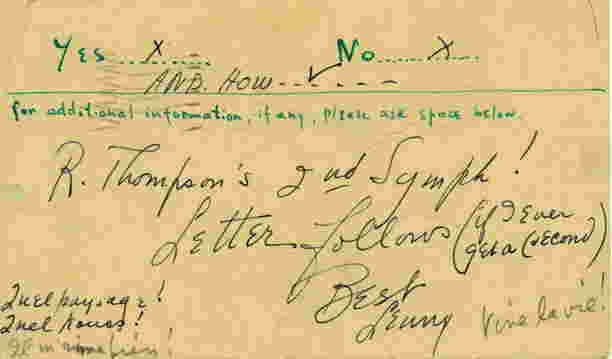 Yes...X..... No......X....
AND HOW - - ✓ - - -
for additional information, if any, please use space below.
R. Thompson's 2nd Symph!
Letter follows (if I ever
get a (second)
Best
Lenny
Quel paysage!
Quel
Vive la vie!